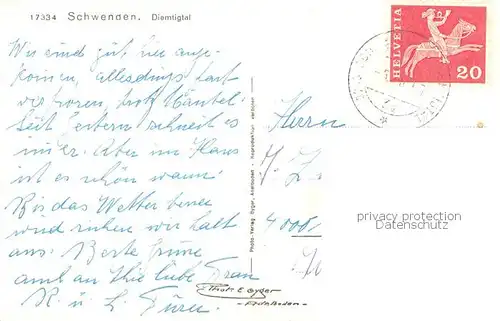 17334 Schwenden. Diemtigtal
HELVETIA
20
Wir sind gut hier ange-
kommen, allerdings fast
erfroren, trotz Mäntel.
Seit gestern schneit es
immer. Aber im Haus
ist es schön warm.
Bis das Wetter besser
wird ruhen wir halt
aus. Beste Grüsse
auch an Ihre liebe Frau
R. u. L.
Herrn
4000
Photo-Verlag Gyger, Adelboden - Reproduktion verboten
Phot. E Gyger
- Adelboden -
privacy protection
Datenschutz